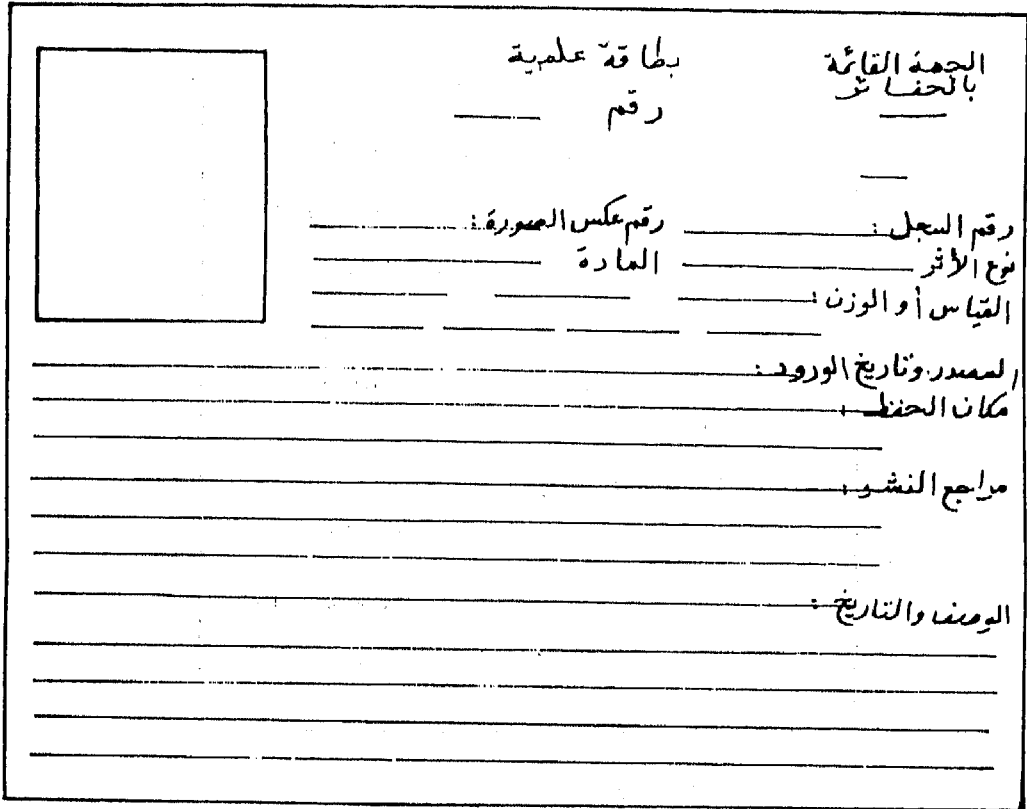 الجهة القائمة
بالحفائر
بطاقة علمية
رقم
رقم السجل : رقم عكس الصورة :
نوع الأثر المادة
القياس أو الوزن :
المصدر وتاريخ الورود :
مكان الحفظ :
مراجع النشر :
الوصف والتاريخ :